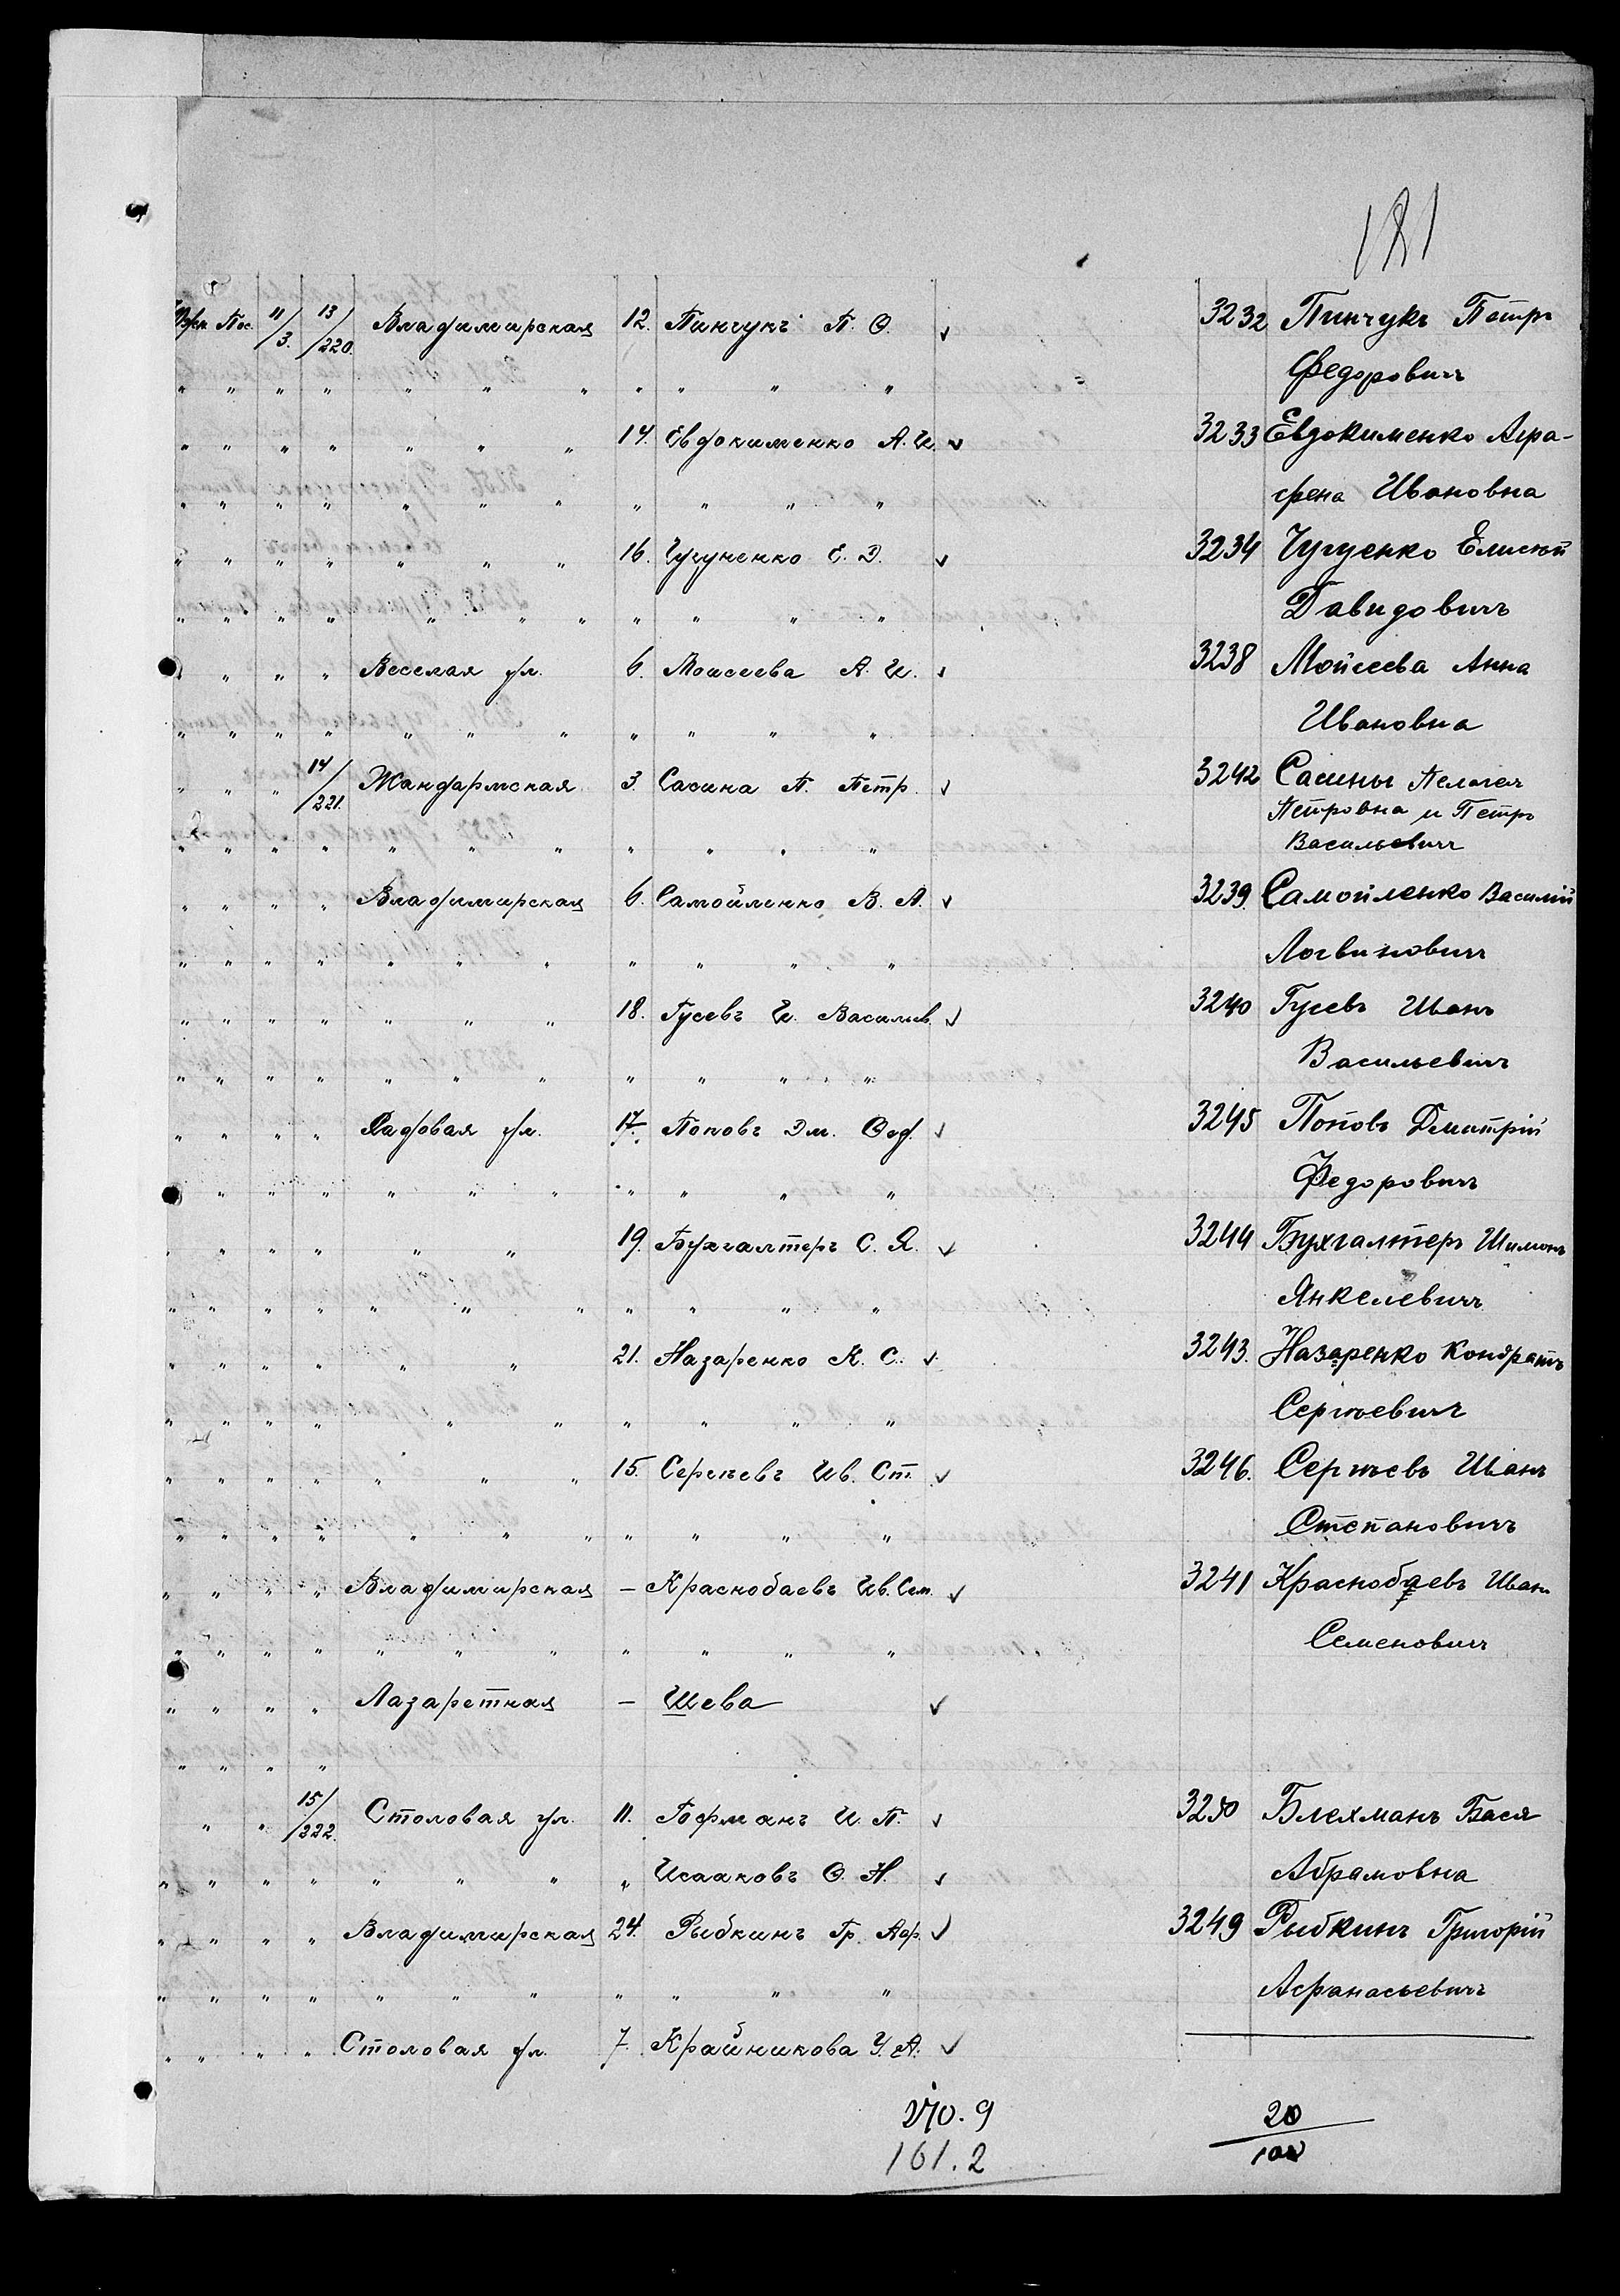 181
Пос. 11/3. 13/220. Владимирская 12. Пинчукъ П. Ѳ. 3232 Пинчукъ Петръ
" " " " " " " " " " " Федоровичъ
" " " " " " " 14. Евдокименко А. И. 3233 Евдокименко Агра-
" " " " " " " " " " " фена Ивановна
" " " " " " " 16. Чугуненко Е. Д. 3234 Чугуенко Елисѣй
" " " " " " " " " " " Давидовичъ
" " " " Веселая ул. 6. Моисеева А. И. 3238 Мойсеева Анна
" " " " " " " " " " " Ивановна
" " " 14/221. Жандармская 3. Сасина П. Петр. 3242 Сасины Пелагея
Петровна и Петръ
" " " " " " " " " " " Васильевичъ
" " " " Владимирская 6. Самойленко В. Л. 3239. Самойленко Василій
" " " " " " " " " " " Логвиновичъ
" " " " " " " 18. Гусевъ И. Васильев. 3240 Гусевъ Иванъ
" " " " " " " " " " " Васильевичъ
" " " " Садовая ул. 17. Поповъ Дм. Ѳед. 3245 Поповъ Дмитрій
" " " " " " " " " " Федоровичъ
" " " " " " 19. Бухгалтеръ С. Я. 3244 Бухгалтеръ Шимонъ
" " " " " " " " " " " Янкелевичъ
" " " " " " 21. Назаренко К. С. 3243. Назаренко Кондратъ
" " " " " " " " " " Сергѣевичъ
" " " " " " " 15. Сергѣевъ Ив. Ст. 3246. Сергѣевъ Иванъ
" " " " " " " " " " " Степановичъ
" " " " Владимирская – Краснобаевъ Ив. Сем. 3241 Краснобаевъ Иванъ
" " " " " " " " " " " Семеновичъ
" " " " Лазаретная – Шева
" " " "
" " 15/222. Столовая ул. 11. Гофманъ И. П. 3250 Блехманъ Бася
" " " " " " " " Исааковъ О. Н. Абрамовна
" " " " Владимирская 24. Рыбкинъ Гр. Аф. 3249 Рыбкинъ Григорій
" " " " " " " " " " " Афанасьевичъ
" " " " Столовая ул. 7. Крайникова У. А.
170. 9 20
161. 2